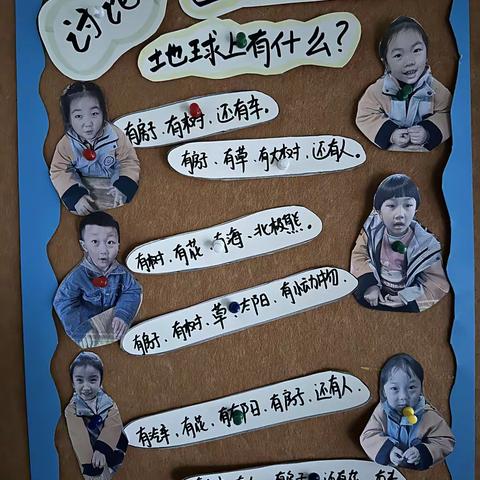 讨论
地球上有什么？
有房子、有树、还有车。
有房子、有草、有大树、还有人。
有树、有花、有海、北极熊。
有房子、有树、草、太阳、有小动物。
有汽车、有花、有太阳、有房子、还有人。